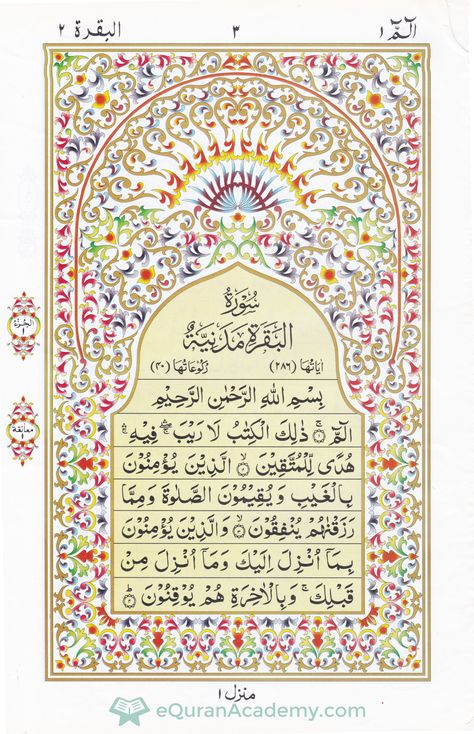 الٓمّٓ ۱ ۳ البقرة ۲
سُوْرَةُ
الْبَقَرَةِ مَدَنِيَّةٌ
اٰيَاتُهَا (۲۸۶) رُكُوْعَاتُهَا (۴۰)
بِسْمِ اللّٰهِ الرَّحْمٰنِ الرَّحِيْمِ
الٓمّٓ ۚ ذٰلِكَ الْكِتٰبُ لَا رَيْبَ ۛ فِيْهِ ۛ
هُدًى لِّلْمُتَّقِيْنَ ۙ الَّذِيْنَ يُؤْمِنُوْنَ
بِالْغَيْبِ وَيُقِيْمُوْنَ الصَّلٰوةَ وَمِمَّا
رَزَقْنٰهُمْ يُنْفِقُوْنَ ۙ وَالَّذِيْنَ يُؤْمِنُوْنَ
بِمَاۤ اُنْزِلَ اِلَيْكَ وَمَاۤ اُنْزِلَ مِنْ
قَبْلِكَ ۚ وَبِالْاٰخِرَةِ هُمْ يُوْقِنُوْنَ ؕ
الجزء ۱
معانقة ۱
منزل ۱
eQuranAcademy.com